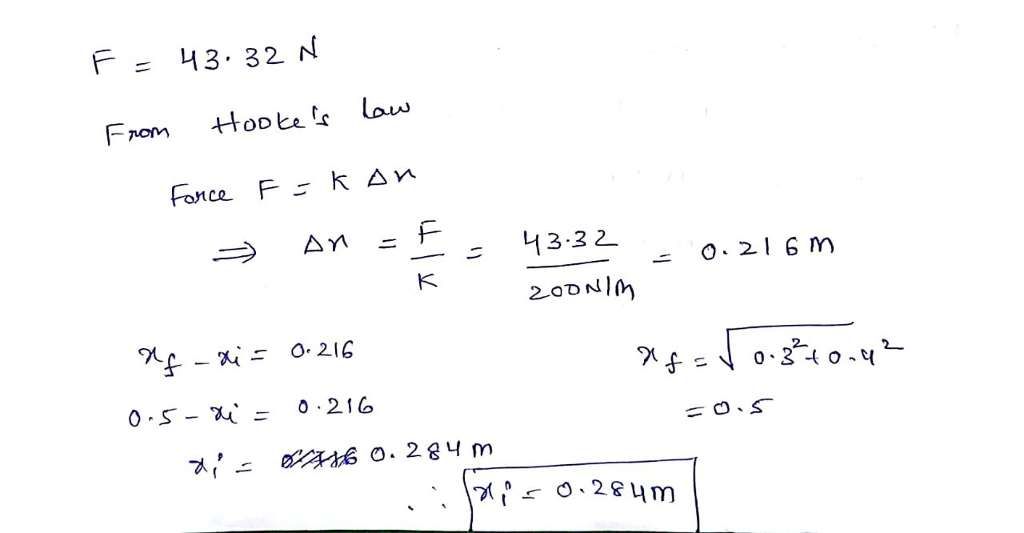 F = 43.32 N
From Hooke's law
Force F = K Δx
⇒ Δx = F/K = 43.32/200N/m = 0.216 m
xf - xi = 0.216
xf = √0.3²+0.4²
0.5 - xi = 0.216
= 0.5
xi = 0.284 m
∴ xi = 0.284m